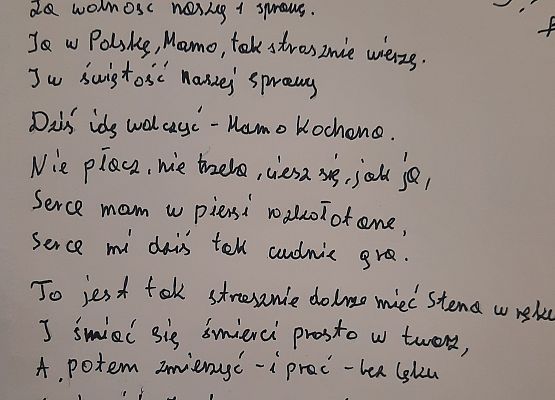 Za wolność naszą i sprawę.
Ja w Polskę, Mamo, tak strasznie wierzę.
I w świętość naszej sprawy
Dziś idę walczyć - Mamo kochana.
Nie płacz, nie trzeba, ciesz się, jak ja,
Serce mam w piersi rozkołotane,
Serce mi dziś tak cudnie gra.
To jest tak strasznie dobrze mieć Stena w ręku
I śmiać się śmierci prosto w twarz,
A potem zmierzyć - i prać - bez lęku